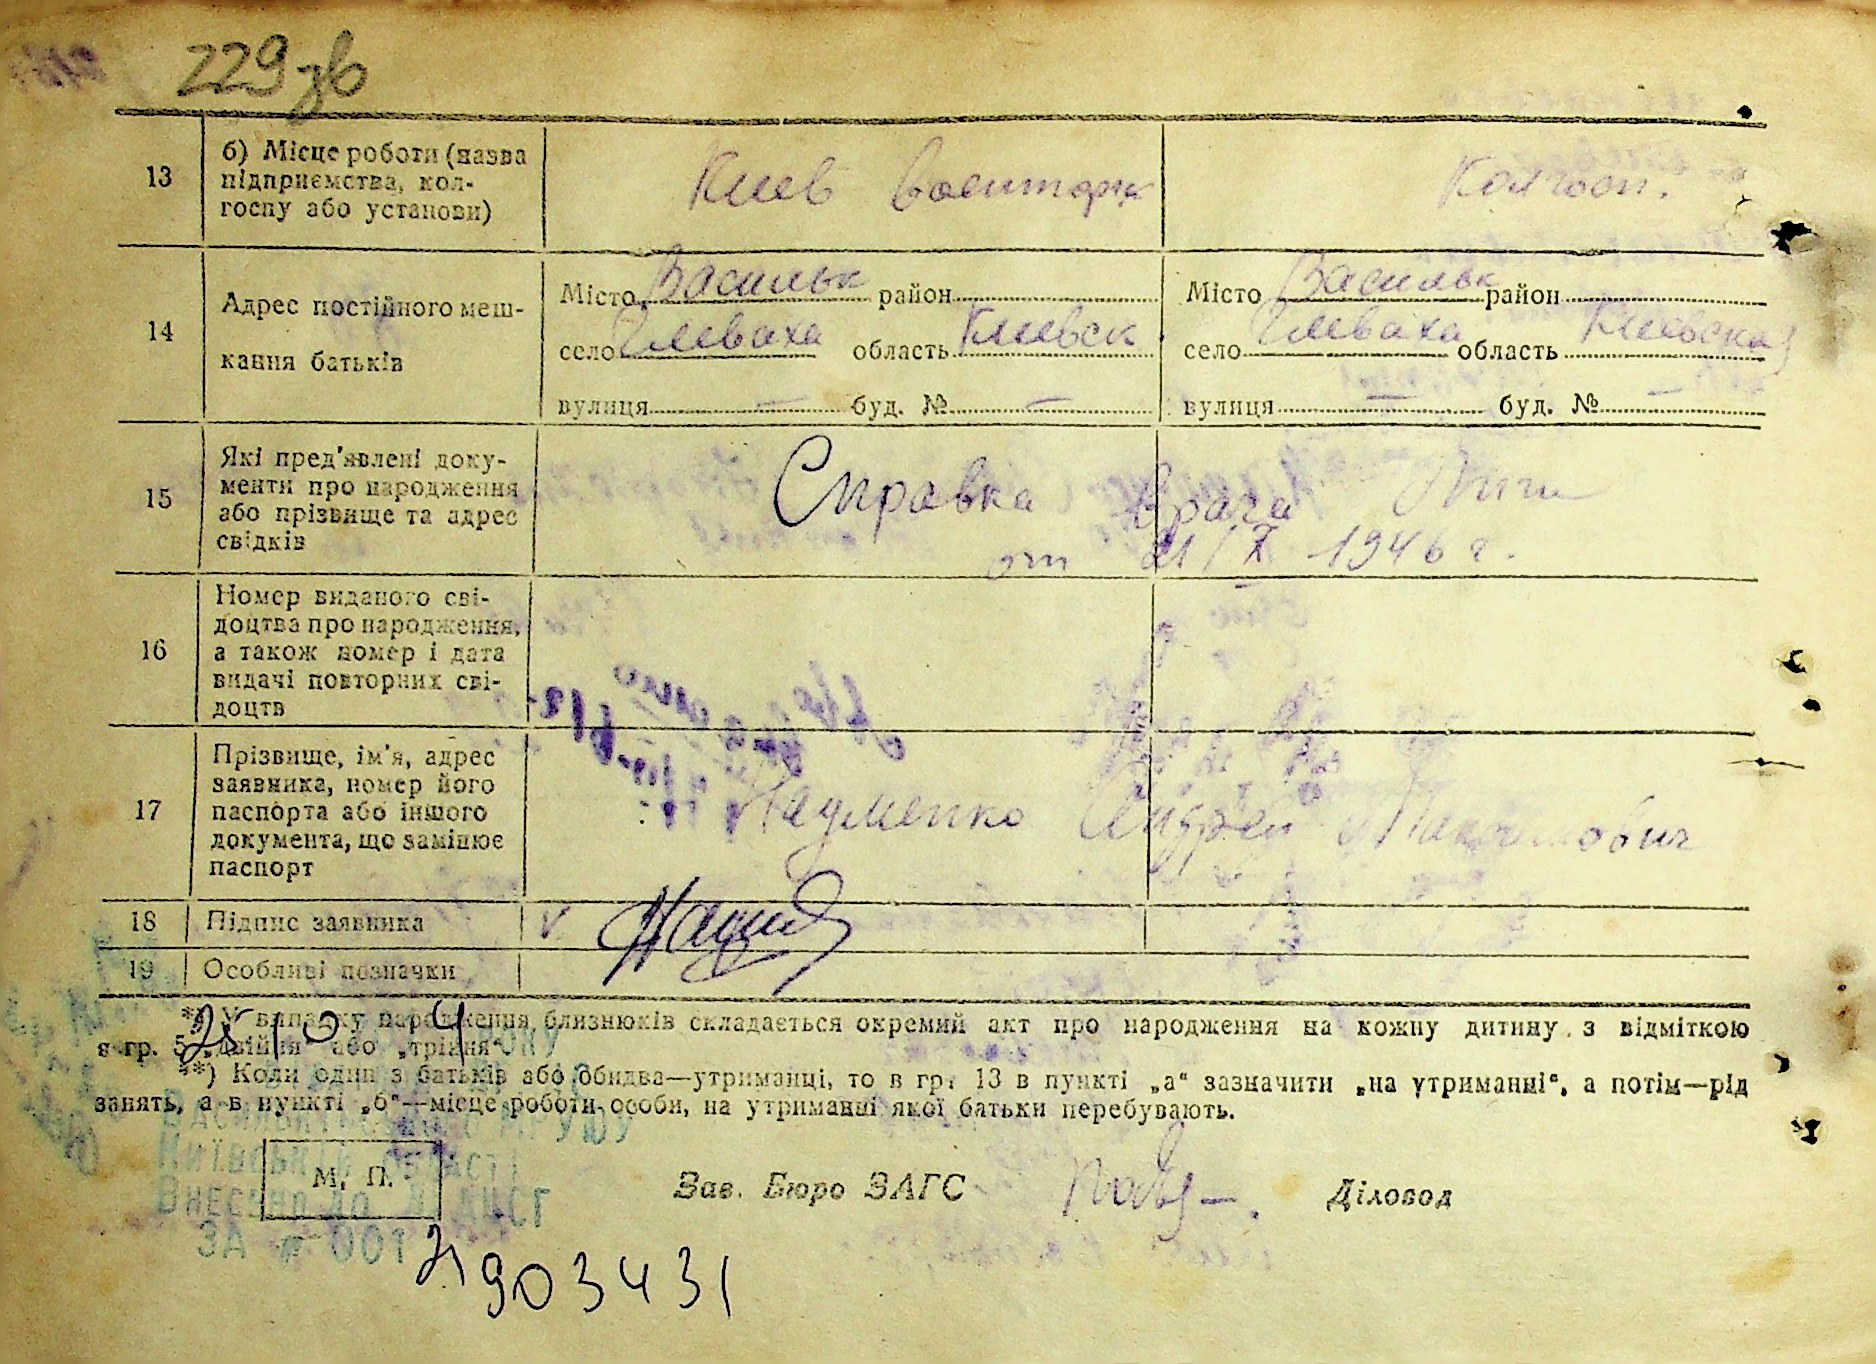 229 зв
13
б) Місце роботи (назва
підприємства, кол-
госпу або установи)
Киев Военторг
Колгосп.
14
Адрес постійного меш-
кання батьків
Місто Васильк район
село Глеваха область Киевск
вулиця — буд. № —
Місто Васильк район
село Глеваха область Киевская
вулиця — буд. № —
15
Які пред'явлені доку-
менти про народження
або прізвище та адрес
свідків
Справка Врача
от 21/X 1946 г.
16
Номер виданого сві-
доцтва про народження,
а також номер і дата
видачі повторних сві-
доцтв
17
Прізвище, ім'я, адрес
заявника, номер його
паспорта або іншого
документа, що замінює
паспорт
Науменко Андрей
18
Підпис заявника
V
19
Особливі позначки
*) У випадку народження близнюків складається окремий акт про народження на кожну дитину з відміткою
в гр. 5 „двійня" або „трійня"
**) Коли один з батьків або обидва—утриманці, то в гр. 13 в пункті „а" зазначити „на утриманні", а потім—рід
занять, а в пункті „б"—місце роботи особи, на утриманні якої батьки перебувають.
Київській області
Внесено до
ЗА № 001
М. П.
Зав. Бюро ЗАГС
Діловод
903431